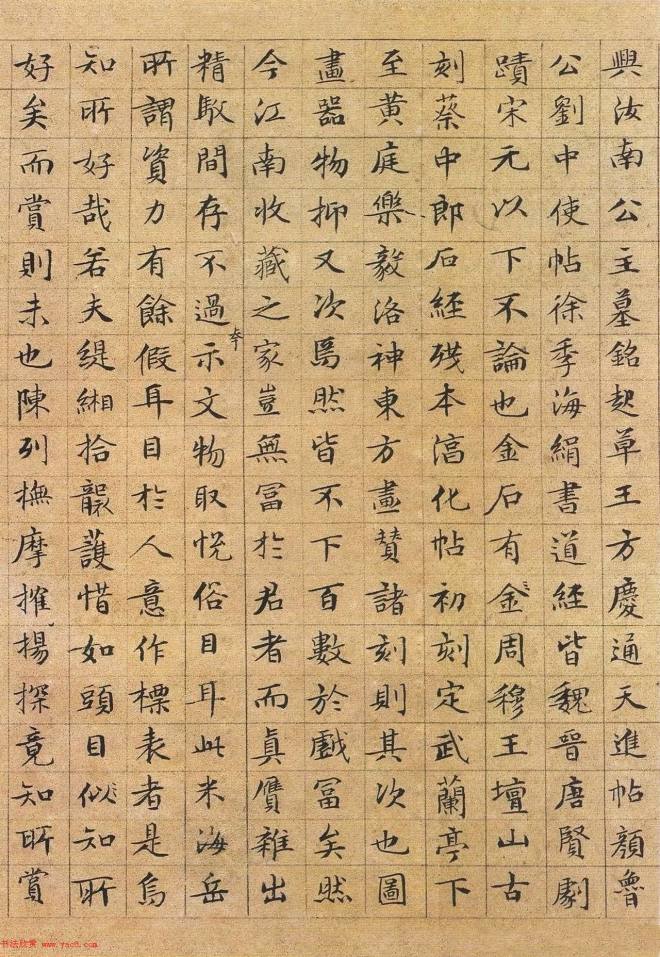 興汝南公主墓銘起草王方慶通天進帖顏魯
公劉中使帖徐季海絹書道經皆魏晉唐賢劇
蹟宋元以下不論也金石有金周穆王壇山古
刻蔡中郎石經殘本淳化帖初刻定武蘭亭下
至黃庭樂毅洛神東方畫贊諸刻則其次也圖
畫器物抑又次焉然皆不下百數於戲冨矣然
今江南收藏之家豈無冨於君者而真贗雜出
精駁間存不過夲示文物取恱俗目耳此米海岳
所謂資力有餘假耳目於人意作標表者是烏
知所好哉若夫緹緗拾襲護惜如頭目似知所
好矣而賞則未也陳列撫摩揚探竟知所賞
书法欣赏 www.yac8.com